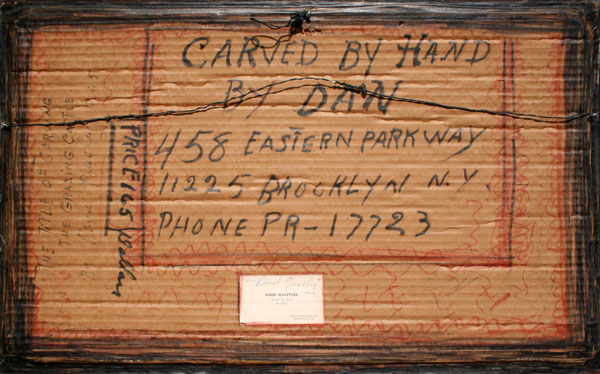 CARVED BY HAND
BY DAN
458 EASTERN PARKWAY
11225 BROOKLYN N.Y.
PHONE PR-17723
PRICE 165
THE TITLE OF CARVING
THE GRAZING CATTLE
WOOD SCULPTURE